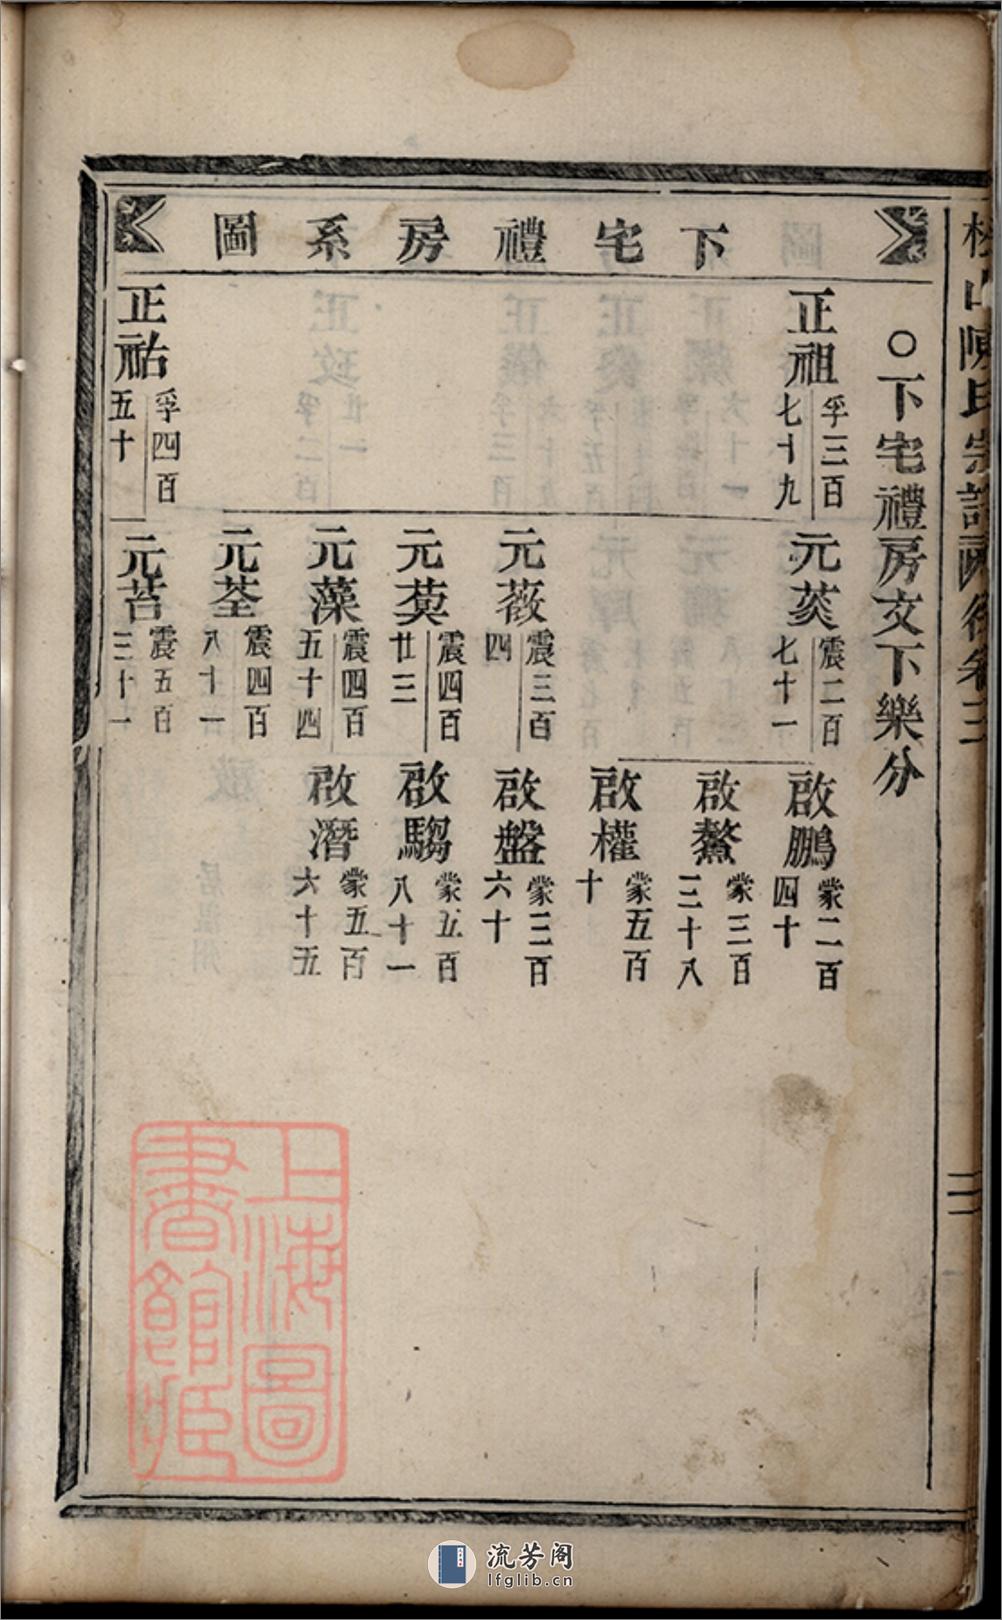 下宅禮房系圖
○下宅禮房文下樂分
正祖
孚三百
七十九
正祐
孚四百
五十
元菼
震二百
七十一
元薇
震三百
四
元萸
震四百
廿三
元藻
震四百
五十四
元荃
震四百
八十一
元苔
震五百
三十一
啟鵬
蒙二百
四十
啟鰲
蒙三百
三十八
啟權
蒙五百
十
啟盤
蒙三百
六十
啟騶
蒙五百
八十一
啟潛
蒙五百
六十五
三
上海圖
書館藏
流芳阁
lfglib.cn